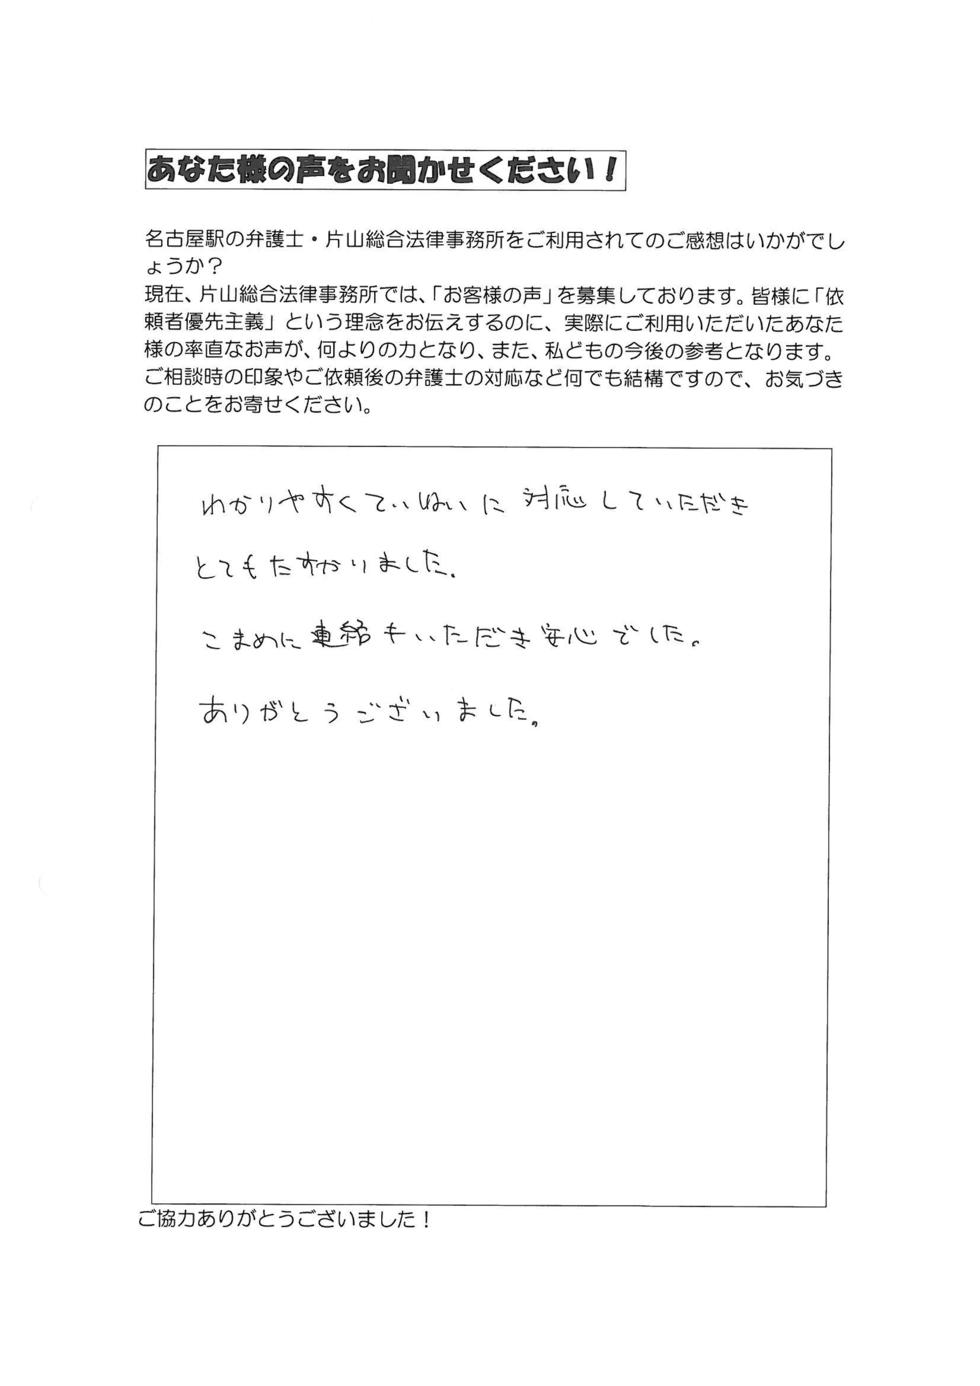 あなた様の声をお聞かせください！
名古屋駅の弁護士・片山総合法律事務所をご利用されてのご感想はいかがでし
ょうか？
現在、片山総合法律事務所では、「お客様の声」を募集しております。皆様に「依
頼者優先主義」という理念をお伝えするのに、実際にご利用いただいたあなた
様の率直なお声が、何よりの力となり、また、私どもの今後の参考となります。
ご相談時の印象やご依頼後の弁護士の対応など何でも結構ですので、お気づき
のことをお寄せください。
わかりやすくていねいに対応していただき
とてもたすかりました。
こまめに連絡もいただき安心でした。
ありがとうございました。
ご協力ありがとうございました！